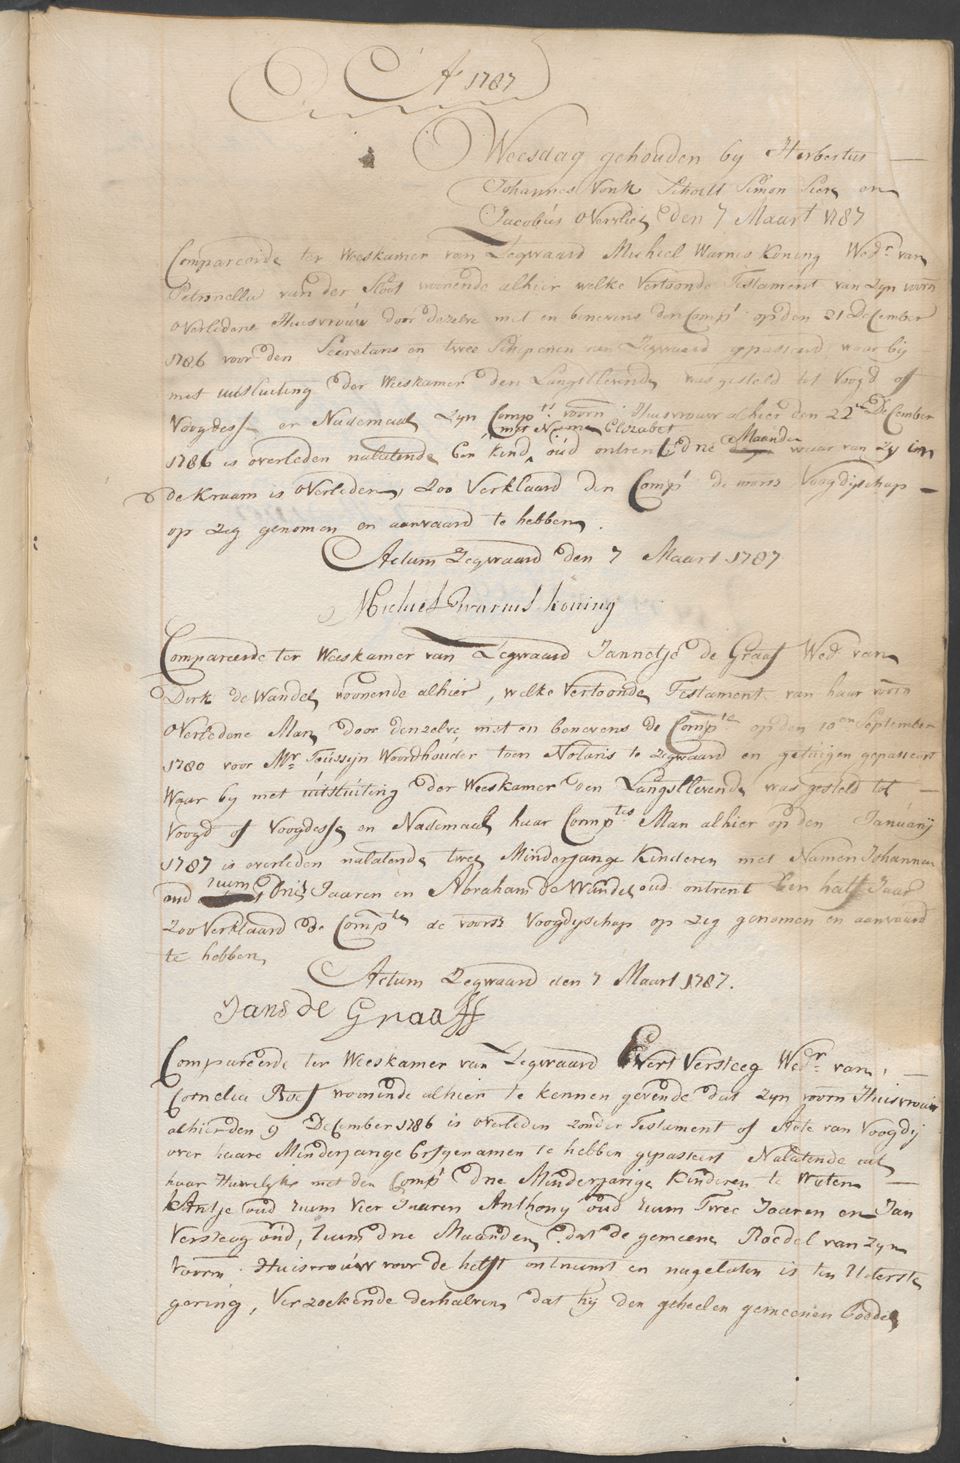 Ao 1787
Weesdag gehouden by Herbertus
Johannes Vonk Schout Simon Siers en
Jacobús Overvliet den 7 Maart 1787
Compareerde ter Weeskamer van Zegwaard Michiel Warnus Koning Wedr. van
Petronella van der Sloot woonende alhier welke vertoonde Testament van zyn voorn
overledene Huisvroúw door dezelve met en benevens den Compt. op den 21 December
1786 voor den Secretaris en twee Schepenen van Zegwaard gepasseerd, waar bij
met uitsluiting der Weeskamer den Langstlevende was gesteld tot Voogd of
Voogdesse en Nademaal zyn Compts voorn. Huisvrouw alhier den 22en December
met Name Elizabet
1786 is overleden nalatende Een kind oúd ontrent drie Maanden waar van zy in
de Kraam is overleden, zoo verklaard den Compt de voorsz Voogdijschap
op zig genomen en aanvaard te hebben.
Actum Zegwaard den 7 Maart 1787
Michiel Warnus koning
Compareerde ter Weeskamer van Zegwaard Jannetje de Graaf Wede van
Dirk de Wandel woonende alhier, welke vertoonde Testament van haar voorn
overledene Man door denzelve met en benevens de Compte op den 10en September
1780 voor Mr. Toússyn Woordhouder toen Notaris te Zegwaard en getuigen gepasseert
Waar by met uitsluiting der Weeskamer den Langstlevende was gesteld tot
Voogd of Voogdesse en Nademaal haar Comptes Man alhier op den Januarij
1787 is overleden nalatende twee Minderjange Kinderen met Namen Johannes
oud ruim Drie Jaaren en Abraham de Wandel oud ontrent Een half Jaar
Zoo Verklaard de Compte de voorsz Voogdyschap op zig genomen en aanvaard
te hebben
Actum Zegwaard den 7 Maart 1787.
Jans de Graaff
Compareerde ter Weeskamer van Zegwaard Evert Versteeg Wedr. van
Cornelia Roos woonende alhier te kennen gevende dat zyn voorn Huisvrouw
alhier den 9 December 1786 is overleden zonder Testament of Acte van Voogdij
over haare Minderjange Erfgenamen te hebben gepasseert Nalatende uit
haar Huwelyk met den Compt drie Minderjarige Kinderen te Weten
Antje oud ruim vier Jaaren Anthony oud ruim Twee Jaaren en Jan
Versteeg oúd, ruim drie Maanden, dat de gemeene Boedel van zyn
voorn. Huisvroúw voor de helft ontruimt en nagelaten is ten Uiterste
gering, Verzoekende derhalven dat hy den geheelen gemeenen boedel